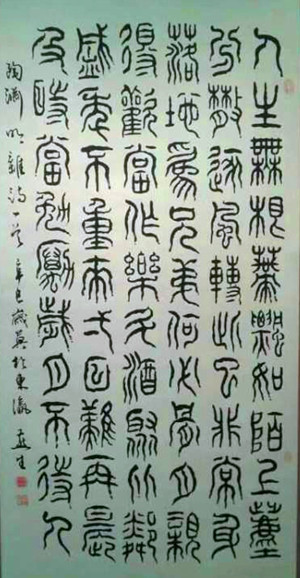 人生無根蔕飄如陌上塵
分散逐風轉此已非常身
落地為兄弟何必骨肉親
得歡當作樂斗酒聚比鄰
盛年不重來弌日難再晨
及時當勉勵歲月不待人
陶淵明雜詩一首 辛巳歲暮於東瀛